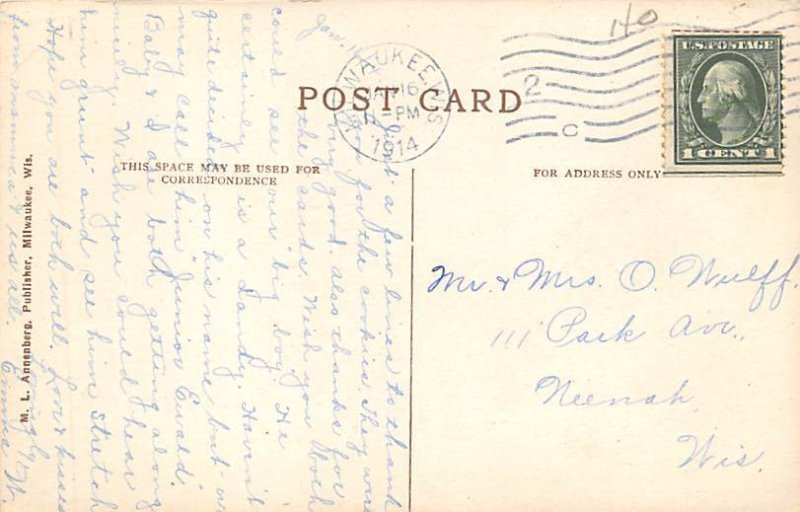 POST CARD
THIS SPACE MAY BE USED FOR
CORRESPONDENCE
FOR ADDRESS ONLY
M. L. Annenberg, Publisher, Milwaukee, Wis.
MILWAUKEE WIS
JAN 16
-PM
1914
2
C
U.S. POSTAGE
1 CENT 1
40
Jan.
Just a few lines to thank
you for the cookies. They were
very good. also thanks for
the cards. Wish you both
could see our big boy. He
certainly is a dandy. Haven't
quite decided on his name but we
may call him "Junior Ewald."
Baby & I are both getting along
nicely. Wish you could hear
him grunt and see him stretch
Hope you are both well. Love & kisses
from mamma & us all. Emma W.
Mr. & Mrs. O. Wulff.
111 Park Ave.,
Neenah
Wis.